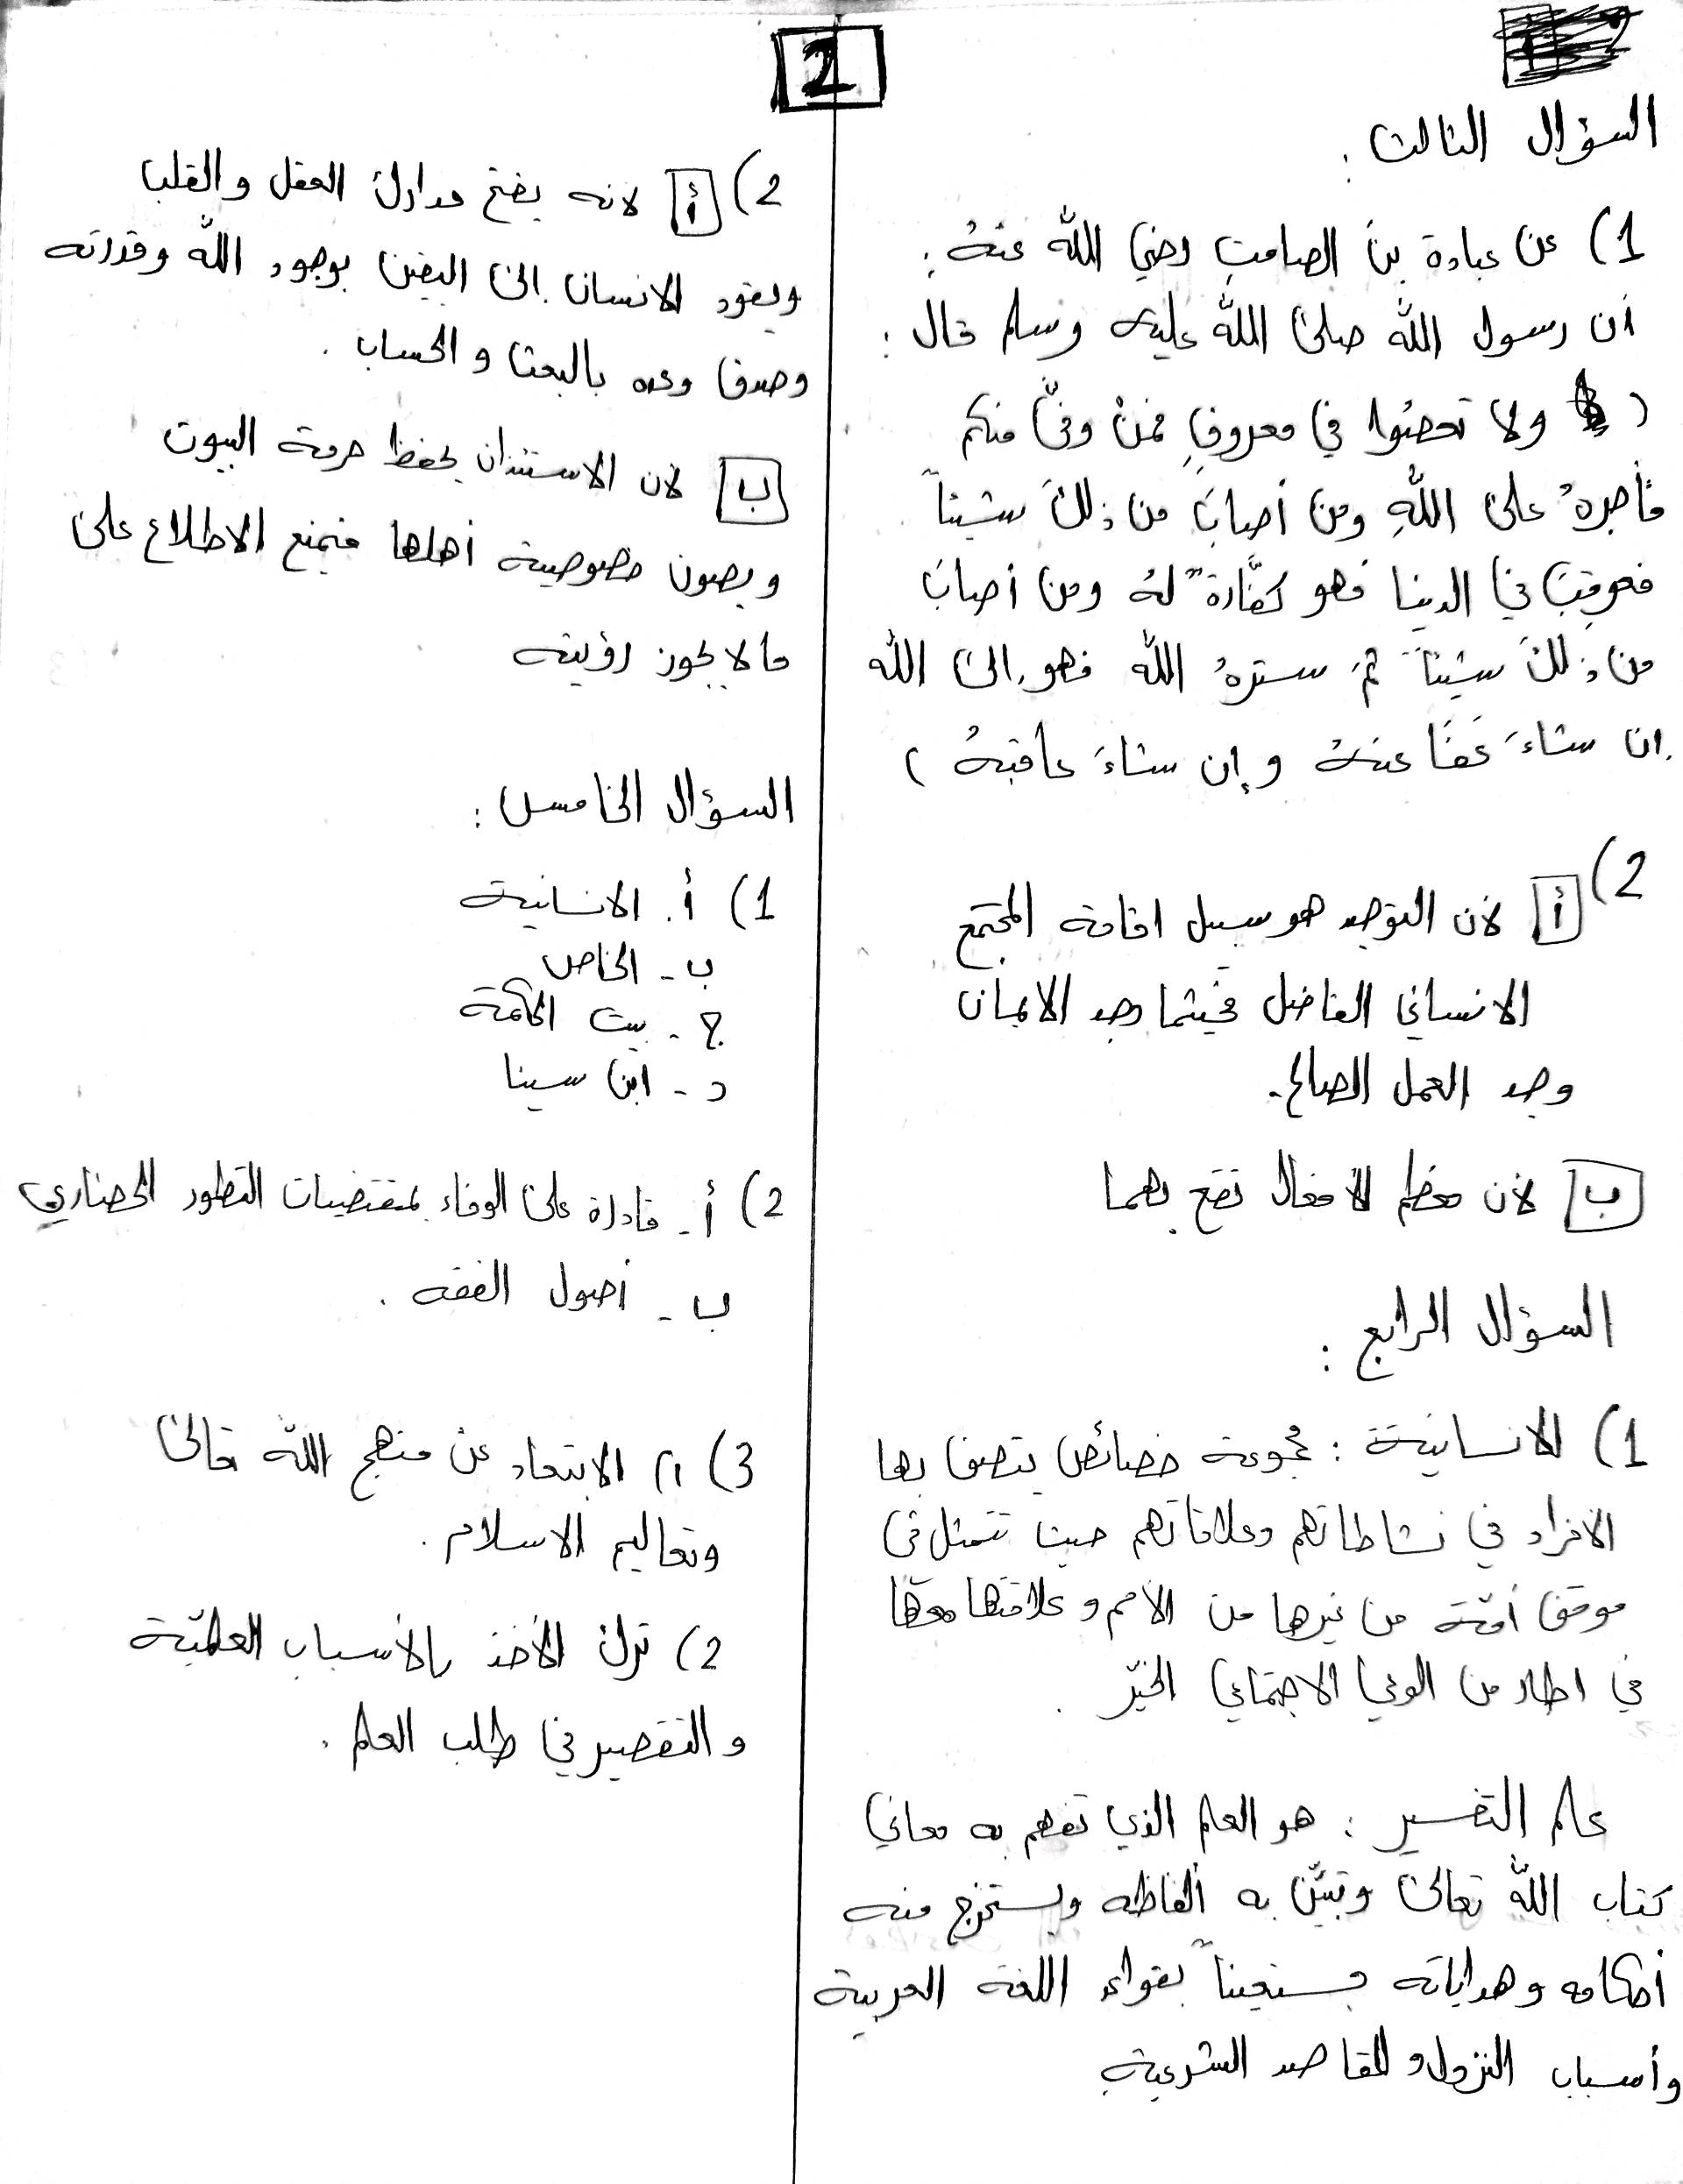 2
السؤال الثالث :
1) عن عبادة بن الصامتِ رضي اللّٰه عنهُ :
أن رسول اللّٰه صلى اللّٰه عليه وسلم قال :
( ولا تعصُوا في معروفٍ فمنْ وفىَّ منكم
فأجرهُ على اللّٰهِ ومن أصابَ من ذلكَ شيئاً
فعوقِبَ في الدنيا فهو كفَّارةٌ لهُ ومن أصابَ
من ذلكَ شيئاً ثمَ سترهُ اللّٰه فهو إلى اللّٰه
إن شاءَ عَفَا عنهُ وإن شاءَ عاقبهُ )
2)
أ لأن التوحيد هو سبيل اقامة المجتمع
الانساني الفاضل فحيثما وجد الايمان
وجد العمل الصالح.
ب لأن معظم الأفعال تقع بهما
السؤال الرابع :
1) الانسانية : مجموعة خصائص يتصف بها
الافراد في نشاطاتهم وعلاقاتهم حيث تتمثل في
موقف أمّة من غيرها من الأمم وعلاقتها معها
في اطار من الوعي الاجتماعي الخيّر .
علم التفسير : هو العلم الذي تفهم به معاني
كتاب اللّٰه تعالى وتبيّن به ألفاظه ويستخرج منه
أحكامه وهداياته مستعيناً بقواعد اللغة العربية
وأسباب النزول والمقاصد الشرعية
2) أ لانه يفتح مدارك العقل والقلب
ويقود الانسان إلى اليقين بوجود اللّٰه وقدرته
وصدق وعده بالبعث والحساب .
ب لأن الاستئذان يحفظ حرمة البيوت
ويصون خصوصية أهلها فيمنع الاطلاع على
ما لا يجوز رؤيته
السؤال الخامس :
1) أ. الانسانية
ب - الخاص
ج - بيت الحكمة
د - ابن سينا
2) أ - قادرة على الوفاء بمقتضيات التطور الحضاري
ب - أصول الفقه .
3) 1) الابتعاد عن منهج اللّٰه تعالى
وتعاليم الاسلام .
2) ترك الأخذ بالأسباب العلميّة
والتقصير في طلب العلم .